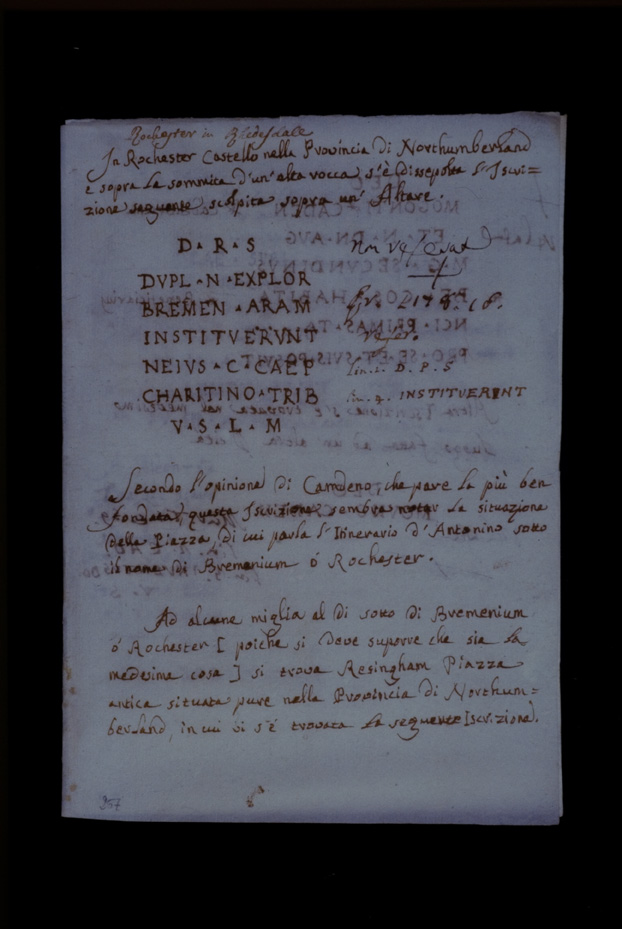 Rochester in Rhedesdale
In Rochester Castello nella Provincia di Northumberland
e sopra la sommità d'un'alta rocca s'è dissepolta l'Iscri=
zione seguente scolpita sopra un'Altare.
D. R. S
DVPL. N. EXPLOR
BREMEN. ARAM
INSTITVERVNT
NEIVS. C. CAEP
CHARITINO. TRIB
V. S. L. M
Gr.
lin. 1. D. P. S
lin. 4. INSTITVERVNT
Secondo l'opinione di Camdeno, che pare la più ben
fondata, questa Iscrizione sembra notar la situazione
della Piazza, di cui parla l'Itinerario d'Antonino sotto
il nome di Bremenium ó Rochester.
Ad alcune miglia al di sotto di Bremenium
ó Rochester [ poiche si deve suporre che sia la
medesima cosa ] si trova Resingham Piazza
antica situata pure nella Provincia di Northum=
berland, in cui vi s'é trovata la seguente Iscrizione.
267